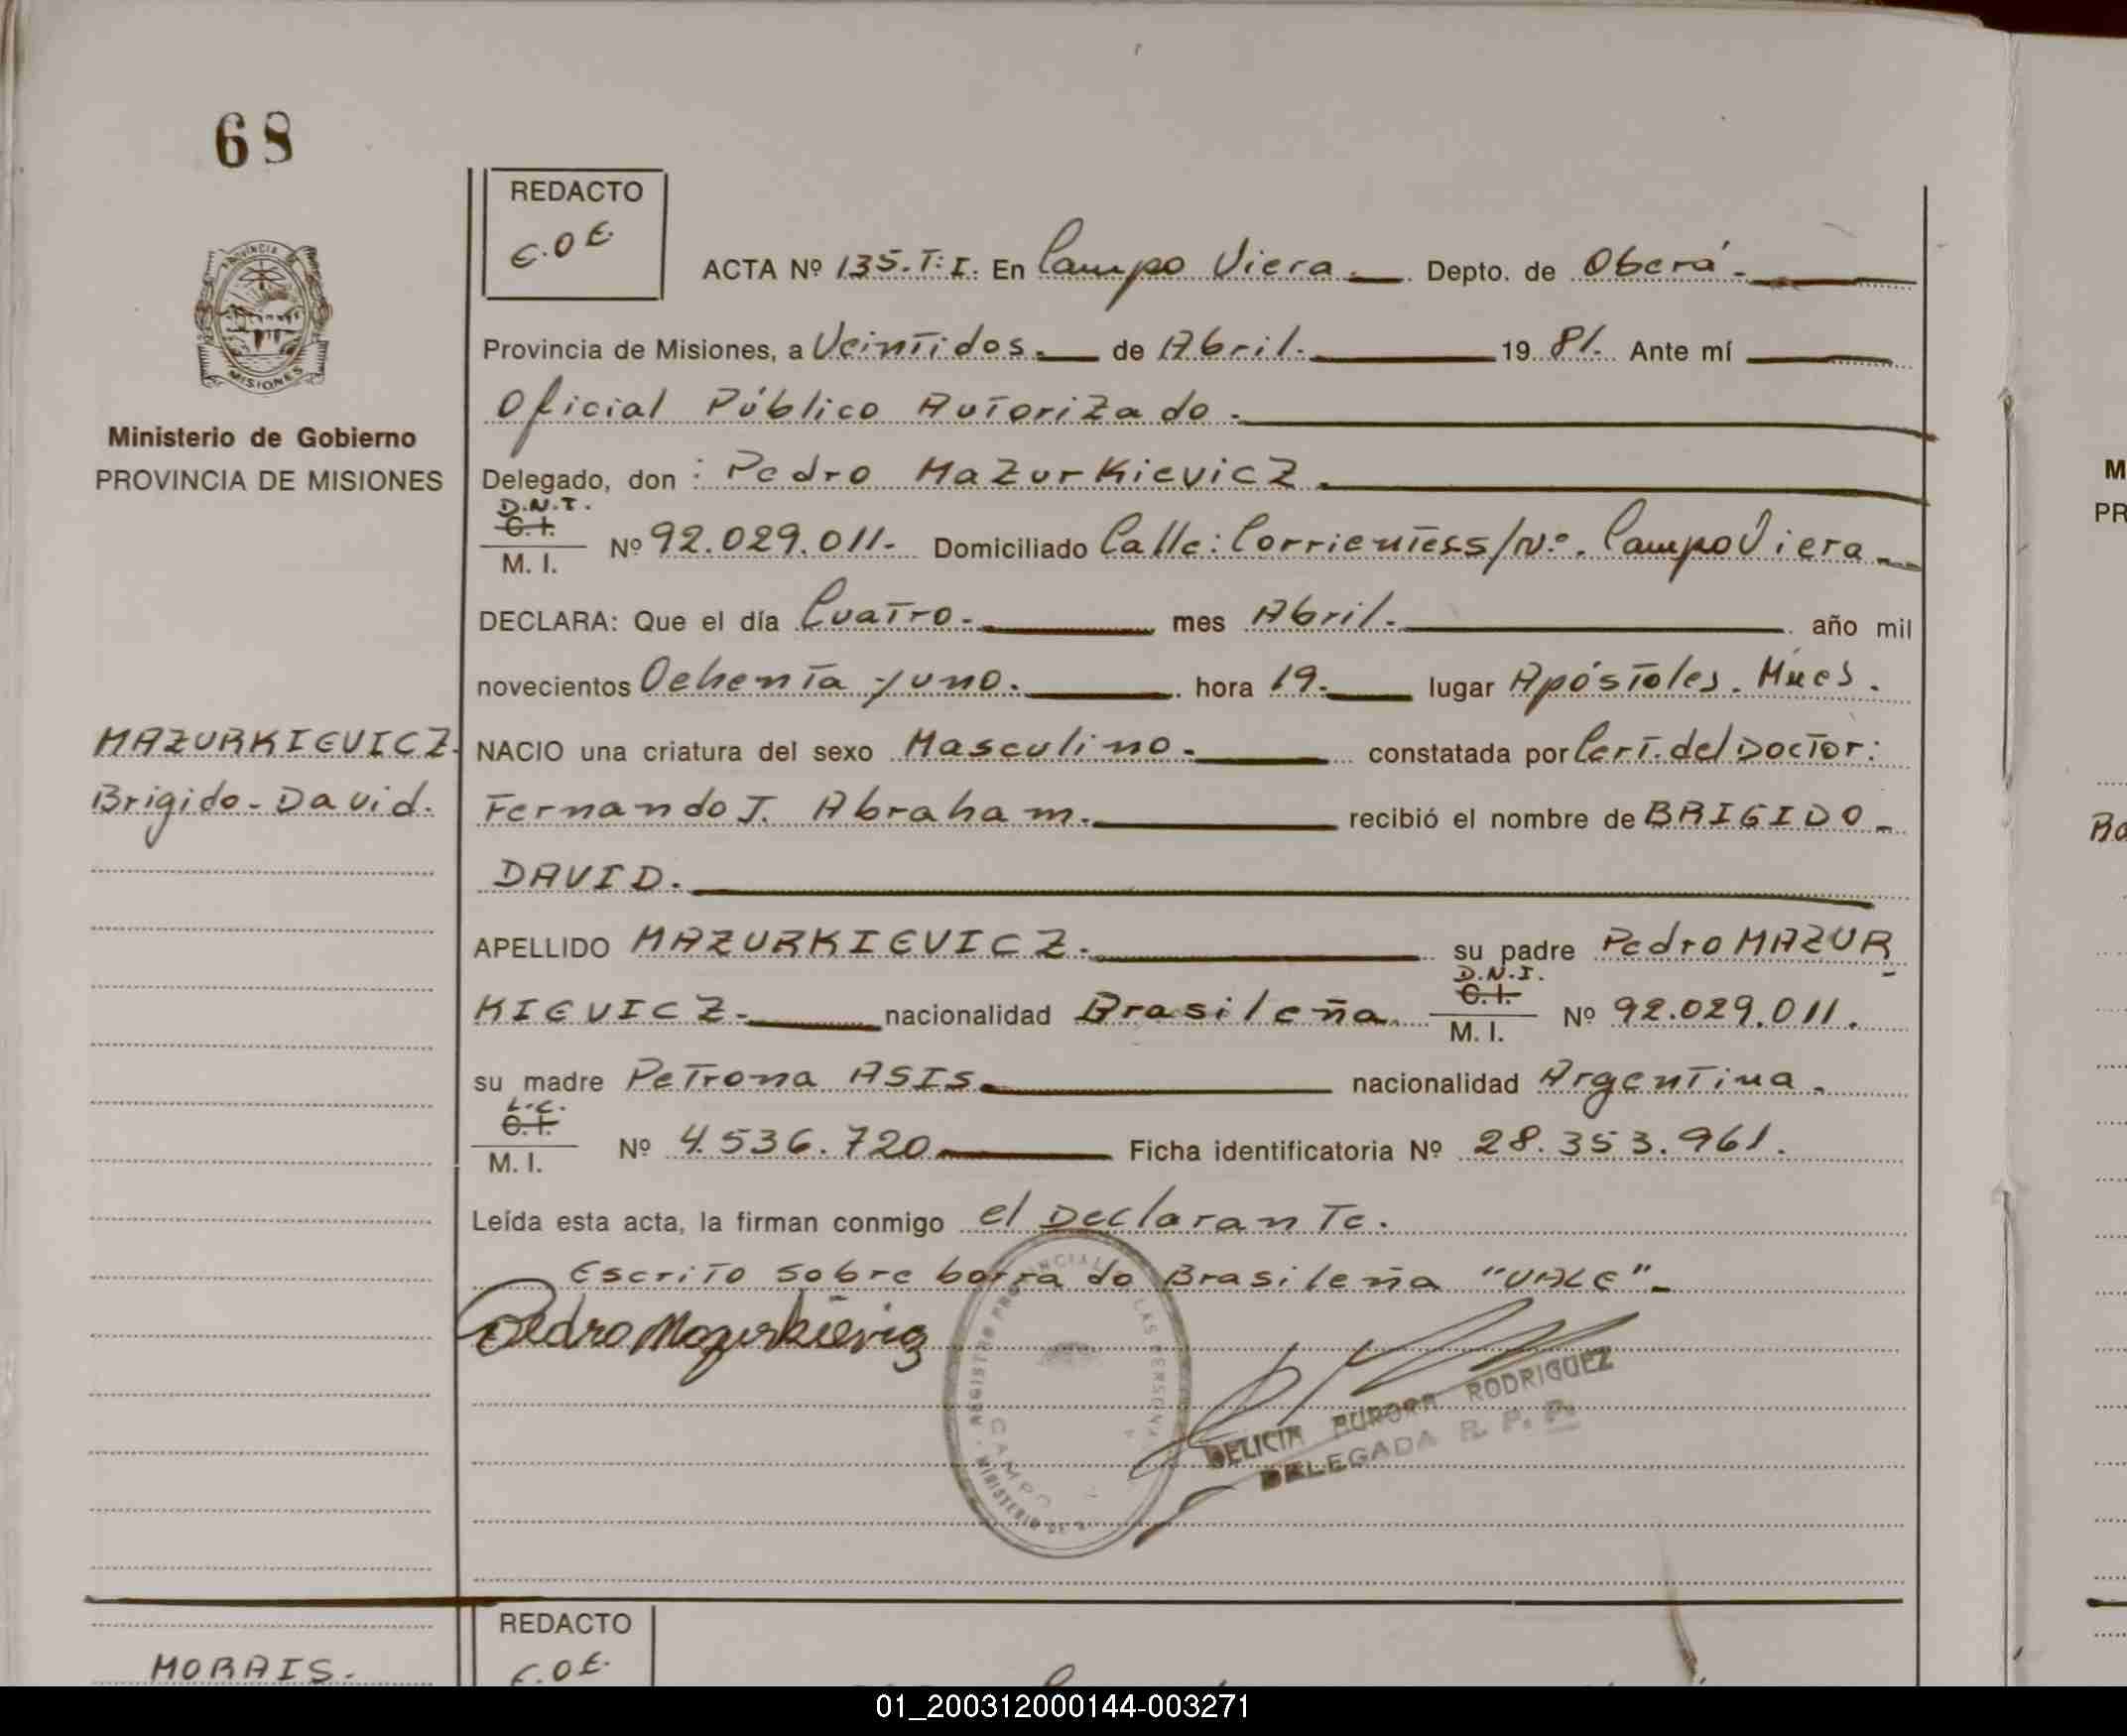 68
REDACTO
C.O.E.
ACTA Nº 135.T:I. En Campo Viera. Depto. de Oberá.
PROVINCIA
MISIONES
Provincia de Misiones, a Veintidos. de Abril. 19 81. Ante mí
Oficial Público Autorizado.
Ministerio de Gobierno
PROVINCIA DE MISIONES
Delegado, don : Pedro Mazurkievicz.
D.N.I.
C.I.
M. I.
Nº 92.029.011. Domiciliado Calle: Corrientes s/Nº. Campo Viera
DECLARA: Que el día Cuatro. mes Abril. año mil
novecientos Ochenta y uno. hora 19. lugar Apóstoles. Mnes.
MAZURKIEVICZ.
Brigido-David.
NACIO una criatura del sexo Masculino. constatada por Cert. del Doctor:
Fernando J. Abraham. recibió el nombre de BRIGIDO
DAVID.
APELLIDO MAZURKIEVICZ. su padre Pedro MAZUR
KIEVICZ. nacionalidad Brasileña. D.N.I. C.I. M. I. Nº 92.029.011.
su madre Petrona ASIS. nacionalidad Argentina.
L.C.
C.I.
M. I.
Nº 4.536.720 Ficha identificatoria Nº 28.353.961.
Leída esta acta, la firman conmigo el Declarante.
Escrito sobre borra do Brasileña "VALE"
Pedro Mazurkievicz
REGISTRO PROVINCIAL LAS PERSONAS
CAMPO
MINISTERIO DE
DELICIA AURORA RODRIGUEZ
DELEGADA R. P. P.
REDACTO
C.O.E.
MORAIS.
01_200312000144-003271